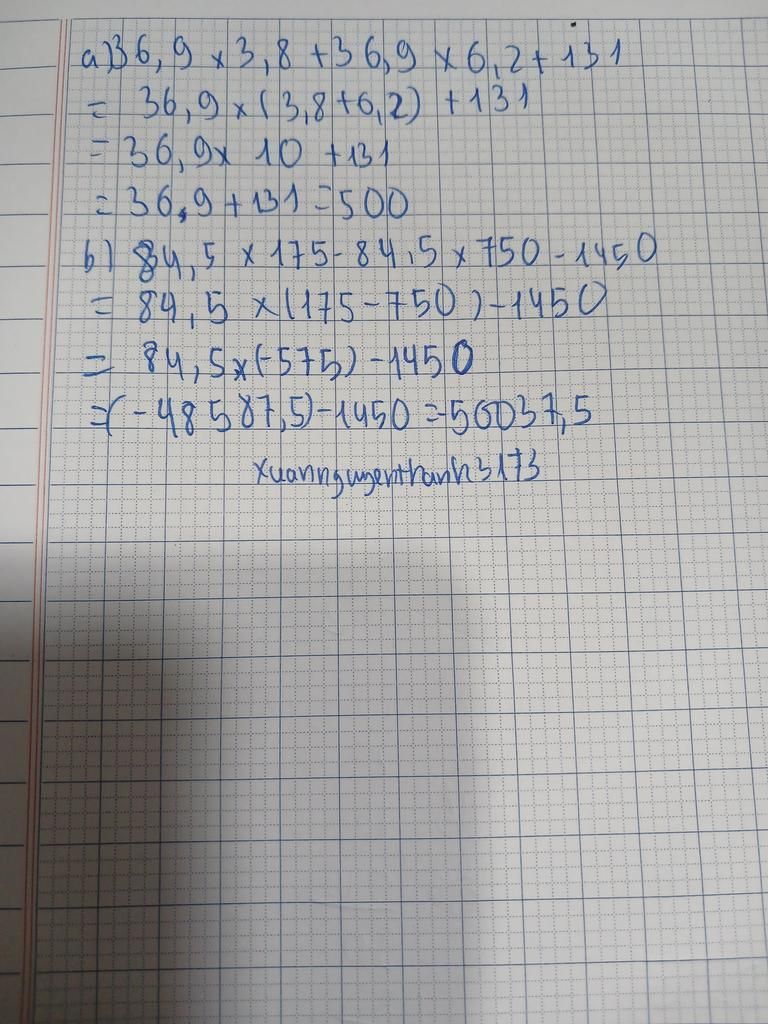 a) 36,9 x 3,8 + 36,9 x 6,2 + 131
= 36,9 x (3,8+6,2) + 131
= 36,9 x 10 + 131
= 36,9 + 131 = 500
b) 84,5 x 175 - 84,5 x 750 - 1450
= 84,5 x (175 - 750) - 1450
= 84,5 x (-575) - 1450
= (-48587,5) - 1450 = -50037,5
xuannguyenthanh3173